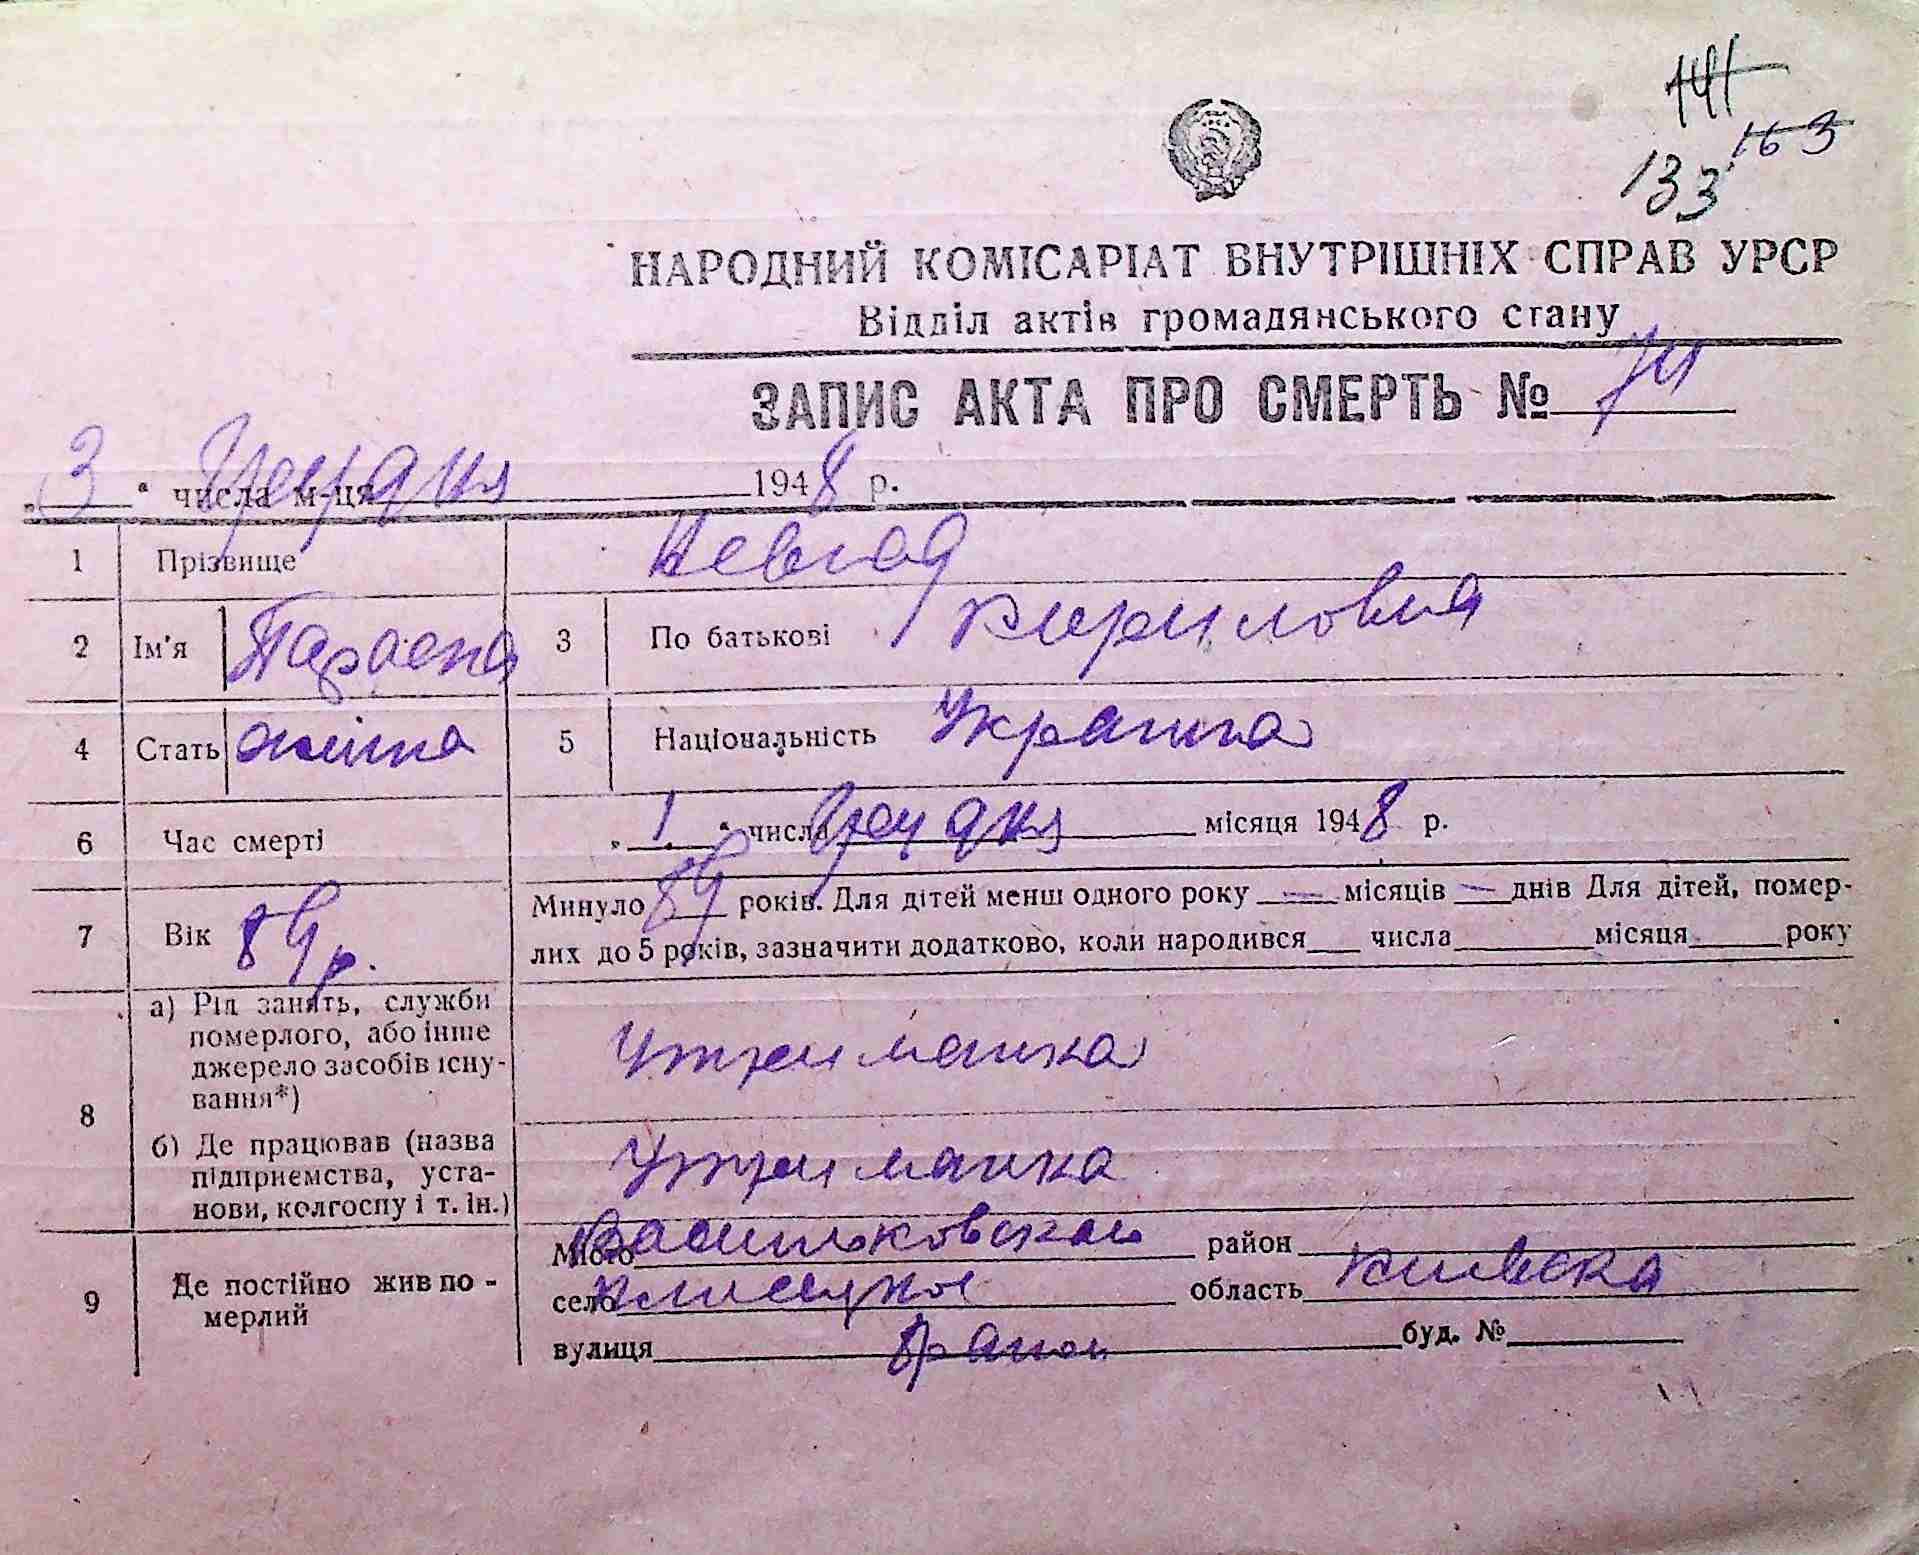 141
163
133
НАРОДНИЙ КОМІСАРІАТ ВНУТРІШНІХ СПРАВ УРСР
Відділ актів громадянського стану
ЗАПИС АКТА ПРО СМЕРТЬ №
„3“ числа м-ця Грудня 1948 р.
1 Прізвище Невгад
2 Ім'я Параска 3 По батькові Кириловна
4 Стать жінка 5 Національність Українка
6 Час смерті „1“ числа Грудня місяця 1948 р.
7 Вік 89 р. Минуло 89 років. Для дітей менш одного року — місяців — днів Для дітей, помер-
лих до 5 років, зазначити додатково, коли народився числа місяця року
8 а) Рід занять, служби
померлого, або інше
джерело засобів існу-
вання*) Утриманка
б) Де працював (назва
підприємства, уста-
нови, колгоспу і т. ін.) Утриманка
9 Де постійно жив по-
мерлий
Місто Васильковский район
село область Киевска
вулиця буд. №